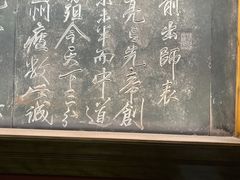 前出師表
亮言先帝創
未半而中道
殂今天下三分
州疲敝此誠